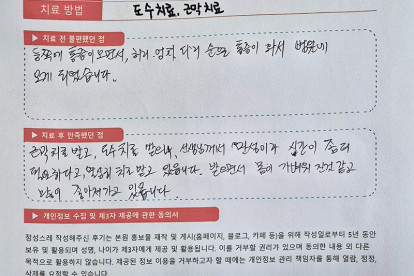 치료 방법 도수치료, 근막치료
▶ 치료 전 불편했던 점
등쪽에 통증이 오면서, 허리 엉치 다리 순으로 통증이 와서 병원에
오게 되었습니다.
▶ 치료 후 만족했던 점
근막치료 받고, 도수치료 받으니, 선생님께서 말씀이 시간이 좀 더
필요하다고, 열심히 치료 받고 있습니다. 받으면서 몸이 가벼워 진것 같고
많이 좋아져가고 있습니다
▶ 개인정보 수집 및 제3자 제공에 관한 동의서
정성스레 작성해주신 후기는 본원 홍보물 제작 및 게시(홈페이지, 블로그, 카페 등)을 위해 작성일로부터 5년 동안
보유 및 활용되며 성명, 나이가 제3자에게 제공 및 활용됩니다. 이를 거부할 권리가 있으며 동의한 내용 외 다른
목적으로 활용하지 않습니다. 제공된 정보 이용을 거부하고자 할 때에는 개인정보 관리 책임자를 통해 열람, 정정,
삭제를 요청할 수 있습니다.